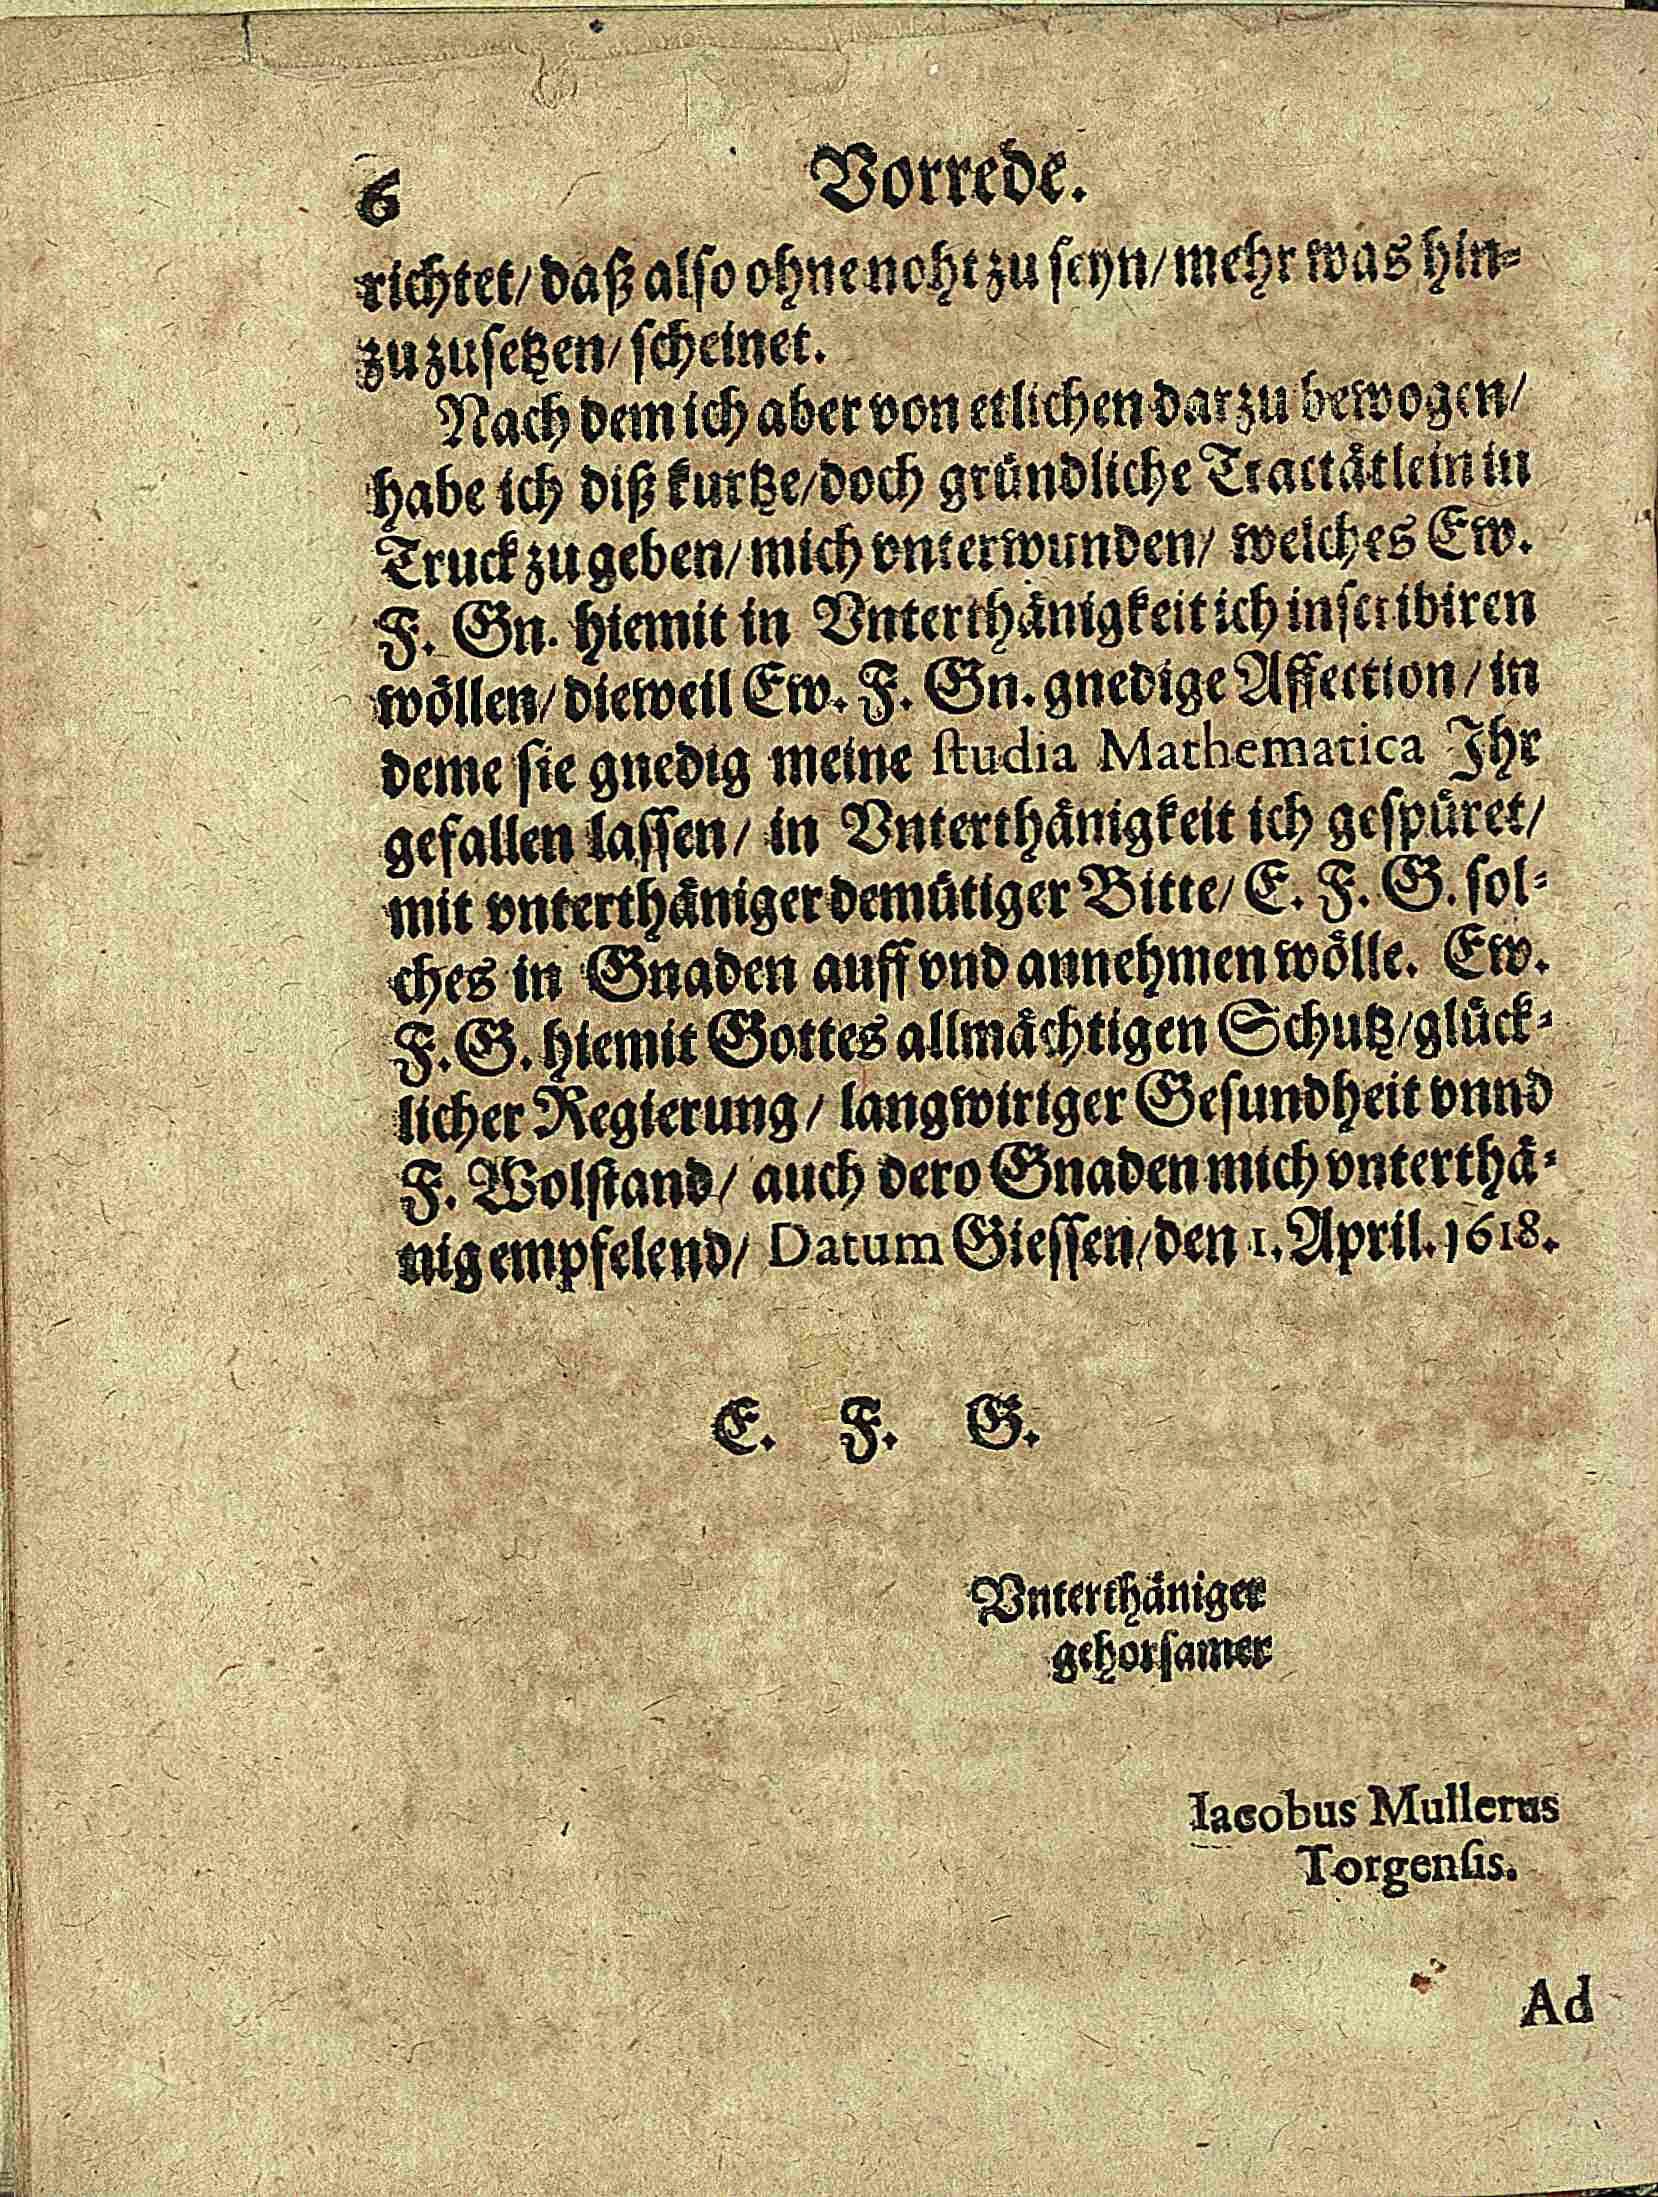 6 Vorrede.
richtet/ daß also ohne noht zu seyn/ mehr was hin-
zu zusetzen/ scheinet.
Nach dem ich aber von etlichen darzu bewogen/
habe ich diß kurtze/ doch gründliche Tractätlein in
Truck zu geben/ mich vnterwunden/ welches Ew.
F. Gn. hiemit in Vnterthänigkeit ich inscribiren
wöllen/ dieweil Ew. F. Gn. gnedige Affection/ in
deme sie gnedig meine studia Mathematica Ihr
gefallen lassen/ in Vnterthänigkeit ich gespüret/
mit vnterthäniger demütiger Bitte/ E. F. G. sol-
ches in Gnaden auff vnd annehmen wölle. Ew.
F. G. hiemit Gottes allmächtigen Schutz/ glück-
licher Regierung/ langwiriger Gesundheit vnnd
F. Wolstand/ auch dero Gnaden mich vnterthä-
nig empfelend/ Datum Giessen/ den 1. April. 1618.
E. F. G.
Vnterthäniger
gehorsamer
Iacobus Mullerus
Torgensis.
Ad